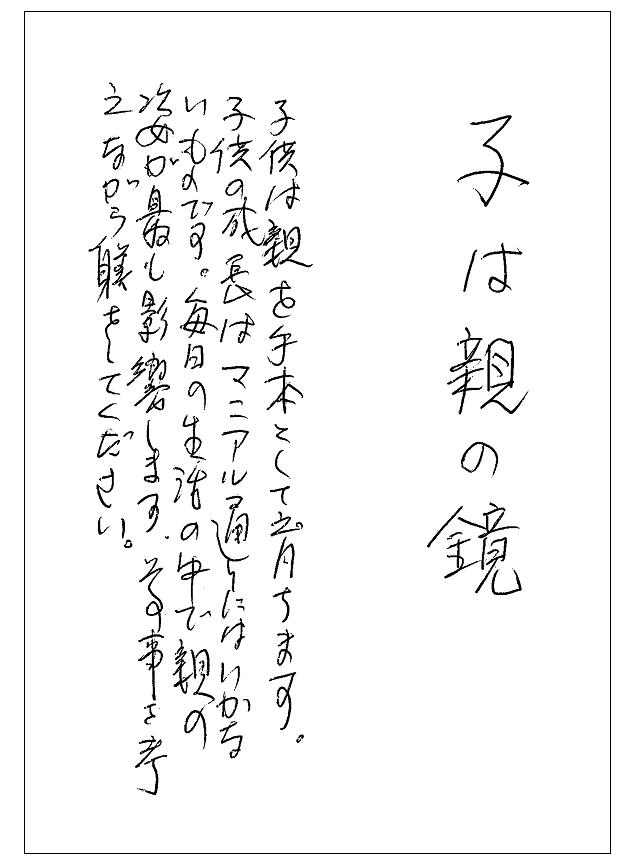 子は親の鏡
子供は親を手本として育ちます。
子供の成長はマニアル通りにはいかな
いものです。毎日の生活の中で親の
姿が最も影響します。その事を考
えながら躾をしてください。